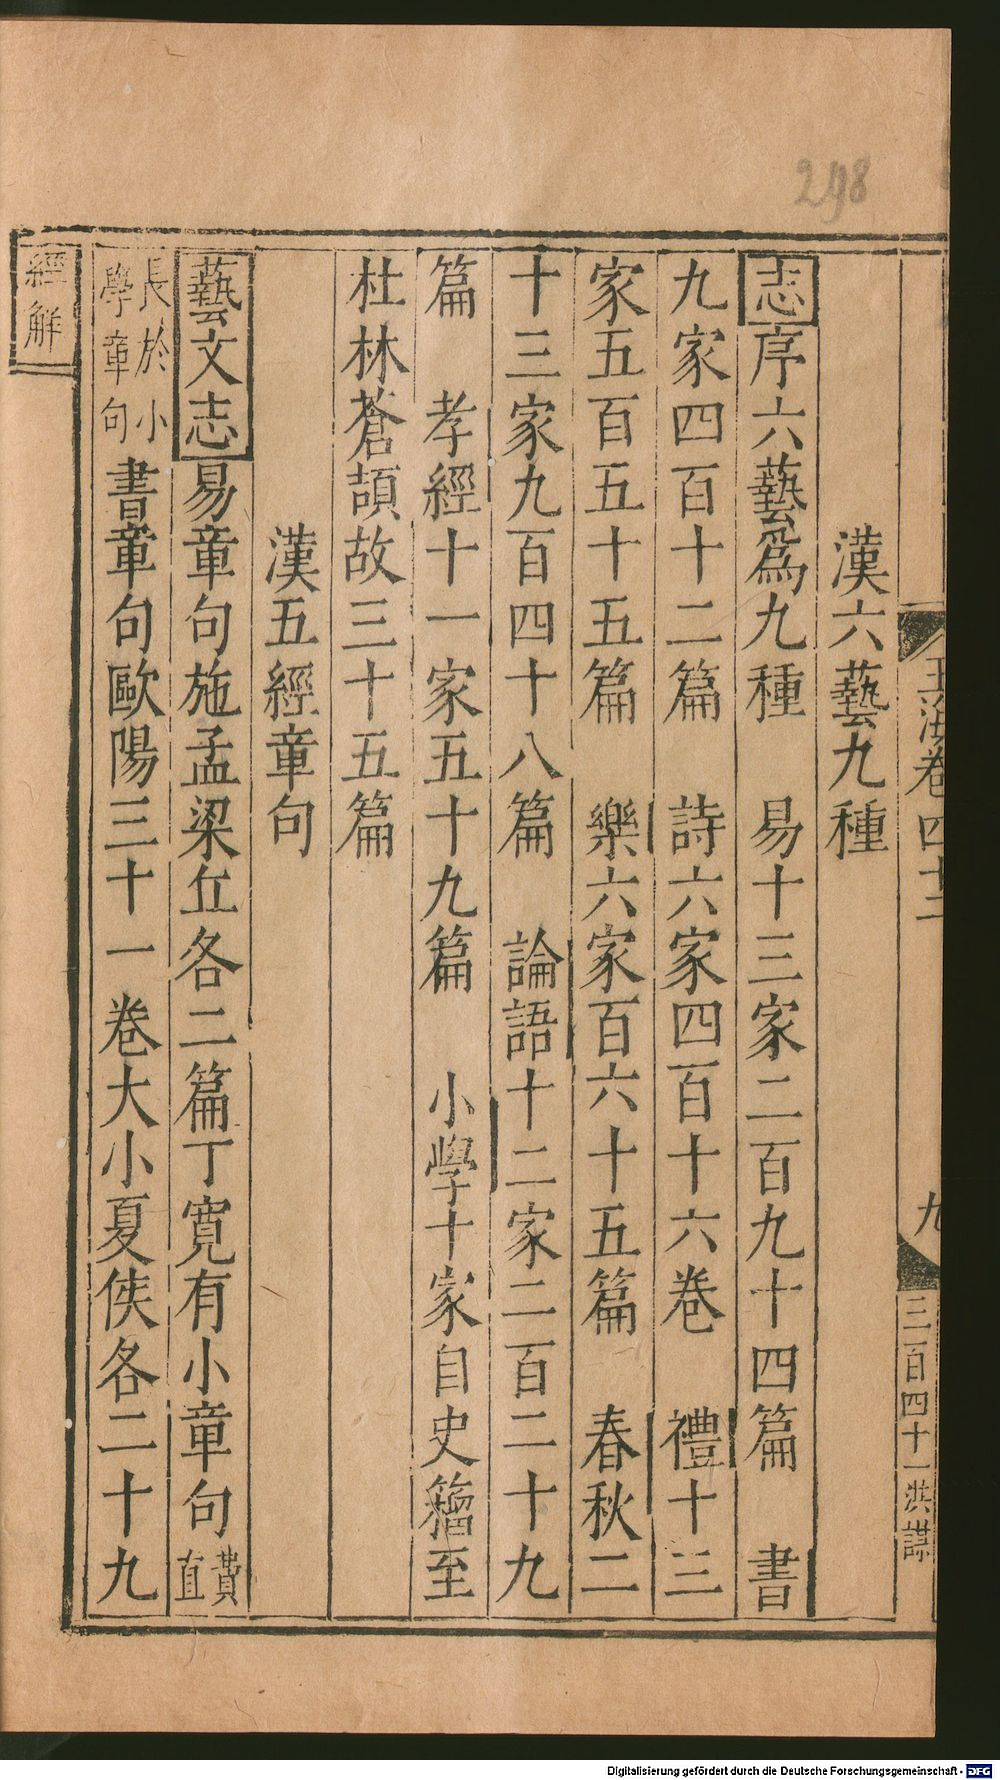 298
玉海卷四十二
九
三百四十一 洪謀
漢六藝九種
志序六藝爲九種 易十三家二百九十四篇 書
九家四百十二篇 詩六家四百十六卷 禮十三
家五百五十五篇 樂六家百六十五篇 春秋二
十三家九百四十八篇 論語十二家二百二十九
篇 孝經十一家五十九篇 小學十家自史籀至
杜林蒼頡故三十五篇
漢五經章句
藝文志易章句施孟梁丘各二篇丁寬有小章句費直
長於小學章句書章句歐陽三十一卷大小夏侯各二十九
經解
Digitalisierung gefördert durch die Deutsche Forschungsgemeinschaft - DFG